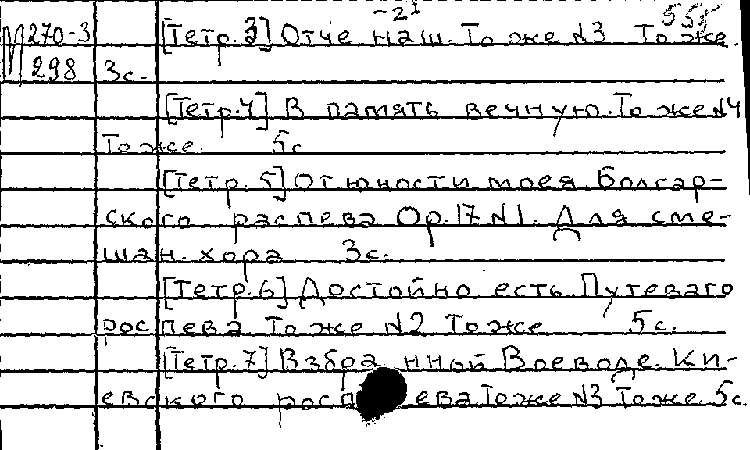 -21 555
М 270-3 [Тетр.3] Отче наш. То же №3 То же.
298 3с.
[Тетр.4] В память вечную. То же №4
То же. 5с
[Тетр. 5] От юности моея. Болгар-
ского распева Ор.17 №1. Для сме-
шан. хора 3с.
[Тетр.6] Достойно есть. Путеваго
роспева То же №2 То же 5с.
[Тетр.7] Взбранной Воеводе. Ки-
евского роспева То же №3 То же. 5с.